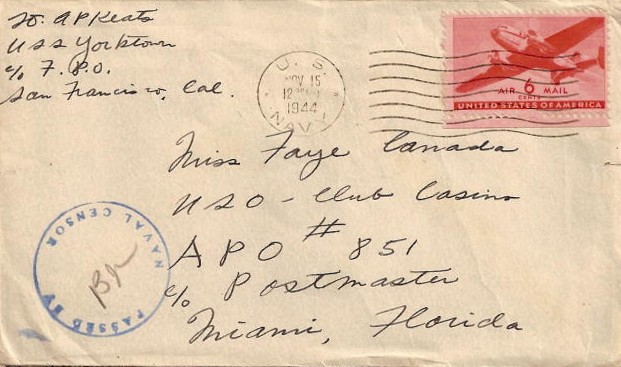 Lt. A P Keats
U S S Yorktown
c/o F. P. O.
San Francisco, Cal.
U. S.
NOV 15
12
1944
NAVY
AIR 6 MAIL
CENTS
UNITED STATES OF AMERICA
Miss Faye Canada
U S O - Club Casino
A P O # 851
c/o Postmaster
Miami, Florida
PASSED BY
NAVAL CENSOR